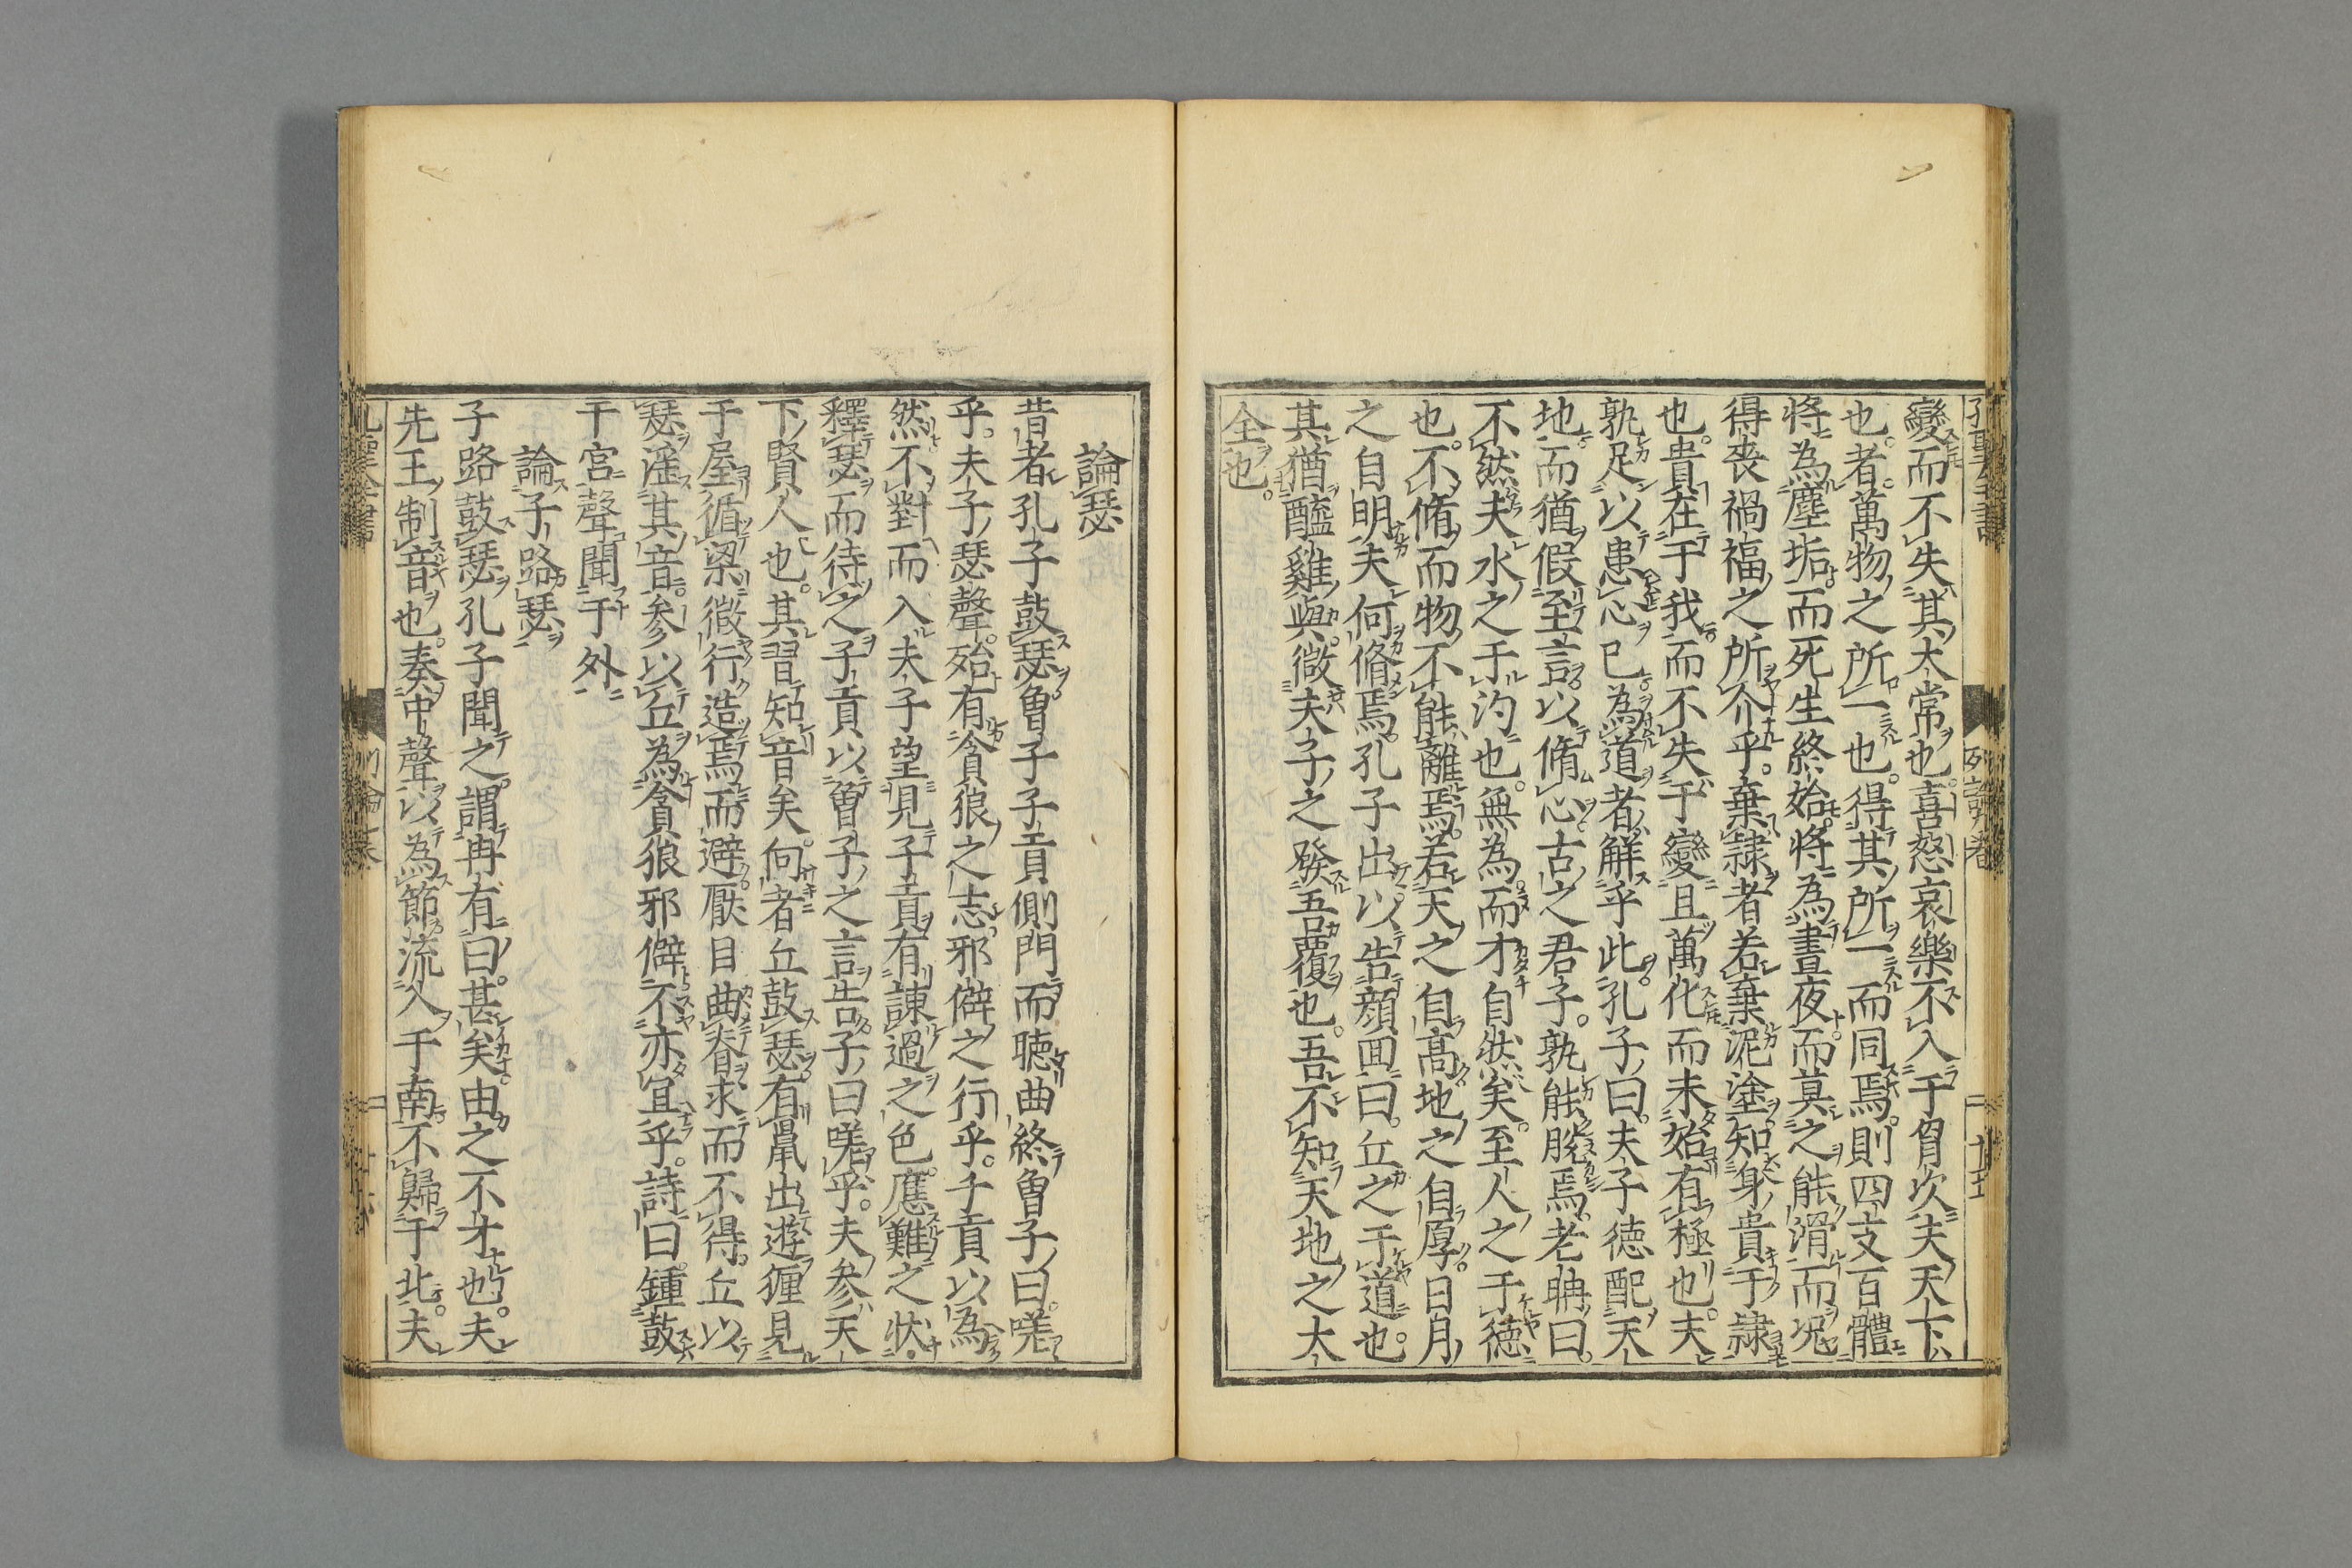 變而不失其大常也。喜怒哀樂不入于胷次夫天下
也。者。萬物之所一也。得其所一而同焉。則四支百體
將為塵垢。而死生終始。將為晝夜而莫之能滑而况
得喪禍福之所介乎。棄隷者若棄泥塗知身貴于隷
也。貴在于我而不失于變且萬化而未始有極也。夫
孰足以患心已為道者解乎此。孔子曰。夫子徳配天
地。而猶假至言以脩心。古之君子。孰能脫焉。老聃曰。
不然夫水之于汋也。無為。而才自然矣。至人之于徳
也。不脩而物不能離焉。若天之自髙地之自厚。日月
之自明夫何脩焉。孔子出以告顔回曰。丘之于道也。
其猶醯雞與。微夫子之發吾覆也。吾不知天地之大
全也。
論瑟
昔者孔子鼓瑟曾子子貢側門而聴曲終曾子曰。嗟
乎。夫子瑟聲。殆有貪狼之志。邪僻之行乎。子貢以為
然不對而入夫子望見子貢有諌過之色。應難之狀。
釋瑟而待之子貢以曾子之言告子曰嗟乎。夫参天
下賢人也。其習知音矣。向者丘鼓瑟有鼠出遊貍見
于屋循梁微行造焉而避厭目曲脊求而不得。丘以
瑟滛其音。参以丘為貪狼邪僻不亦冝乎。詩曰。鍾鼓
于宮聲聞于外
論子路瑟
子路鼓瑟孔子聞之。謂冉有曰。甚矣。由之不才也。夫
先王制音也。奏中聲以為節流入于南不歸于北。夫